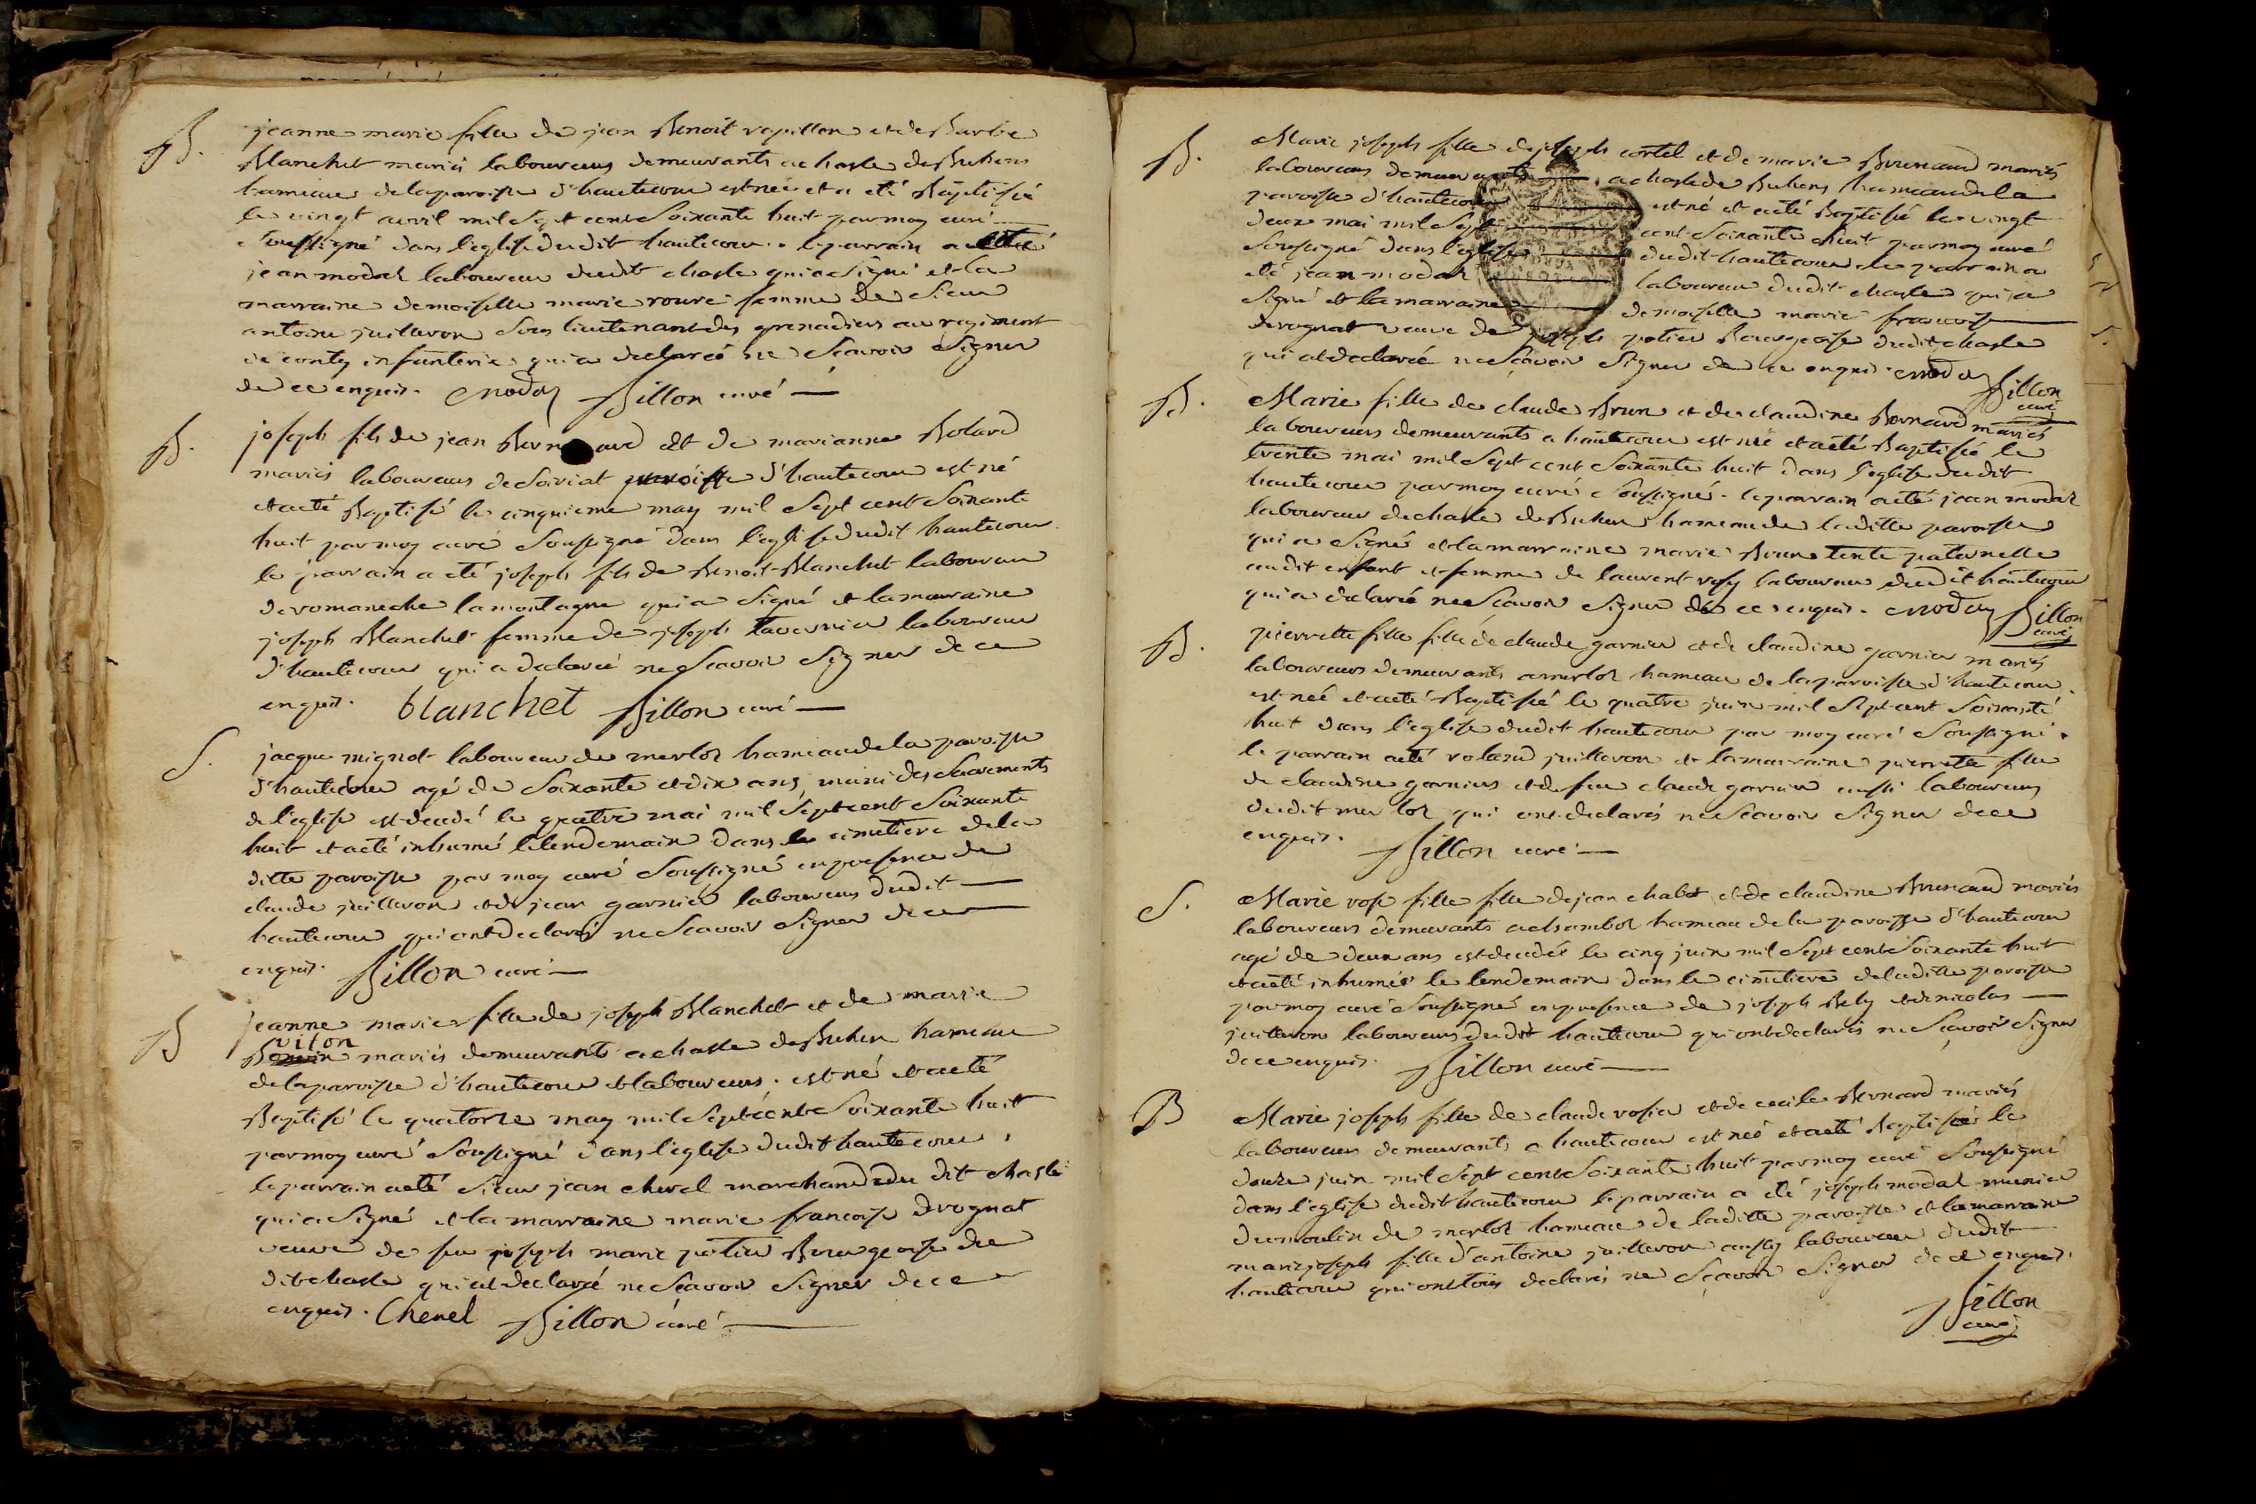 B.
jeanne marie fille de jean Benoit rapillon et de Barbe
Blanchet mariés laboureurs demeurants a chasle de Buhens
hameau de la paroisse d'hautecour est née et a eté Baptisée
le vingt avril mil sept cent soixante huit par moy curé
soussigné dans l'eglise dudit hautecour. le parrain a eté
jean modas laboureur dudit chasle qui a signé et la
marraine demoiselle marie roure femme de sieur
antoine juilleron sous lieutenant des grenadiers au regiment
de conty infanterie qui a declareé ne scavoir signer
de ce enquis. Modas Billon curé
B.
joseph fils de jean Bernard et de marianne Bolard
mariés laboureurs de Soiriat paroisse d'hautecour est né
et a eté Baptisé le cinquieme may mil sept cent soixante
huit par moy curé soussigné dans l'eglise dudit hautecour
le parrain a eté joseph fils de Benoit Blanchet laboureur
de romaneche la montagne qui a signé et la marraine
joseph Blanchet femme de joseph tavernier laboureur
d'hautecour qui a declareé ne scavoir signer de ce
enquis. blanchet Billon curé
S.
jacque mignot laboureur de merloz hameau de la paroisse
d'hautecour agé de soixante et dix ans, muni des sacrements
de l'eglise est decedé le quatre mai mil sept cent soixante
huit et a eté inhumé le lendemain dans le cimetiere de la
ditte paroisse par moy curé soussigné en presence de
claude juilleron et de jean garnier laboureurs dudit
hautecour qui ont declaré ne scavoir signer de ce
enquis. Billon curé
B
jeanne marie fille de joseph Blanchet et de marie
viton
mariés demeurants a chasle de Buhen hameau
de la paroisse d'hautecour et laboureurs. est né et a eté
Baptisé le quatorze may mil sept cent soixante huit
par moy curé soussigné dans l'eglise dudit hautecour,
le parrain a eté sieur jean chevel marchand du dit chasle
qui a signé et la marraine marie francoise drognat
veuve de feu joseph marie potier Bourgeoise du
dit chasle qui at declareé ne scavoir signer de ce
enquis. Chevel Billon curé
B.
Marie joseph fille de joseph cortel et de marie Brunaud mariés
laboureurs demeurants a chasle de Buhens hameau de la
paroisse d'hautecour est né et a eté Baptisé le vingt
deux mai mil sept cent soixante huit par moy curé
soussigné dans l'eglise dudit hautecour le parrain a
eté jean modas laboureur dudit chasle qui a
signé et la marraine demoiselle marie francoise
drognat veuve de joseph potier Bourgeoise dudit chasle
qui at declareé ne scavoir signer de ce enquis. Modas Billon
curé
B.
Marie fille de claude Brun et de claudine Bernard mariés
laboureurs demeurants a hautecour est née et a eté Baptisée le
trente mai mil sept cent soixante huit dans l'eglise dudit
hautecour par moy curé soussigné. le parrain a eté jean modas
laboureur de chasle de Buhen hameau de la ditte paroisse
qui a signé et la marraine marie Brun tente paternelle
audit enfant et femme de laurent laboureur dudit hautecour
qui a declareé ne scavoir signer de ce enquis. Modas Billon
curé
B.
pierrette fille fille de claude garnier et de claudine garnier mariés
laboureurs demeurants a merloz hameau de la paroisse d'hautecour.
est neé et a eté Baptisée le quatre juin mil sept cent soixante
huit dans l'eglise dudit hautecour par moy curé soussigné.
le parrain a eté roland juilleron et la marraine pierrette fille
de claudine garnier et de feu claude garnier aussi laboureurs
dudit merloz qui ont declarés ne scavoir signer de ce
enquis. Billon curé
S.
Marie rose fille fille de jean chabot et de claudine Brunaud mariés
laboureurs demeurants a chamboz hameau de la paroisse d'hautecour
agé de deux ans est decedée le cinq juin mil sept cent soixante huit
et a eté inhumée le lendemain dans le cimetiere de la ditte paroisse
par moy curé soussigné en presence de joseph Bely et de nicolas
juilleron laboureurs dudit hautecour qui ont declarés ne scavoir signer
de ce enquis. Billon curé
B
Marie joseph fille de claude rosier et de cecile Bernard mariés
laboureurs demeurants a hautecour est neé et a eté Baptiseé le
douze juin mil sept cent soixante huit par moy curé soussigné
dans l'eglise dudit hautecour le parrain a eté joseph modas munier
du moulin de merloz hameau de la ditte paroisse et la marraine
marie joseph fille d'antoine juilleron aussy laboureur dudit
hautecour qui ont tous declarés ne scavoir signer de ce enquis.
Billon
curé